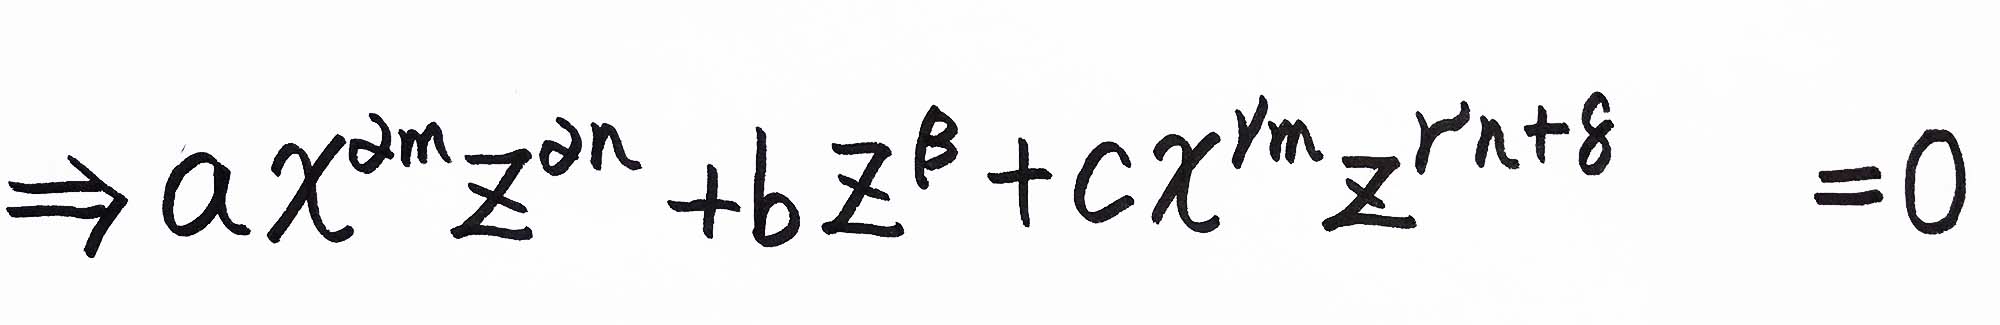 ⇒ a x^{αm} z^{αn} + b z^{β} + c x^{γm} z^{γn+δ} = 0